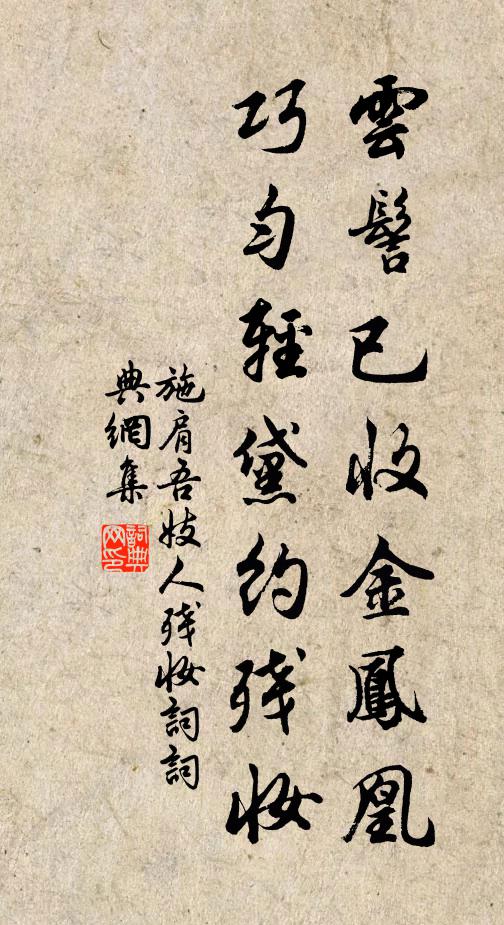 雲髻已收金鳳凰
巧勻輕黛約殘妝
施肩吾妓人殘妝詞詞
典網集
詞典網印